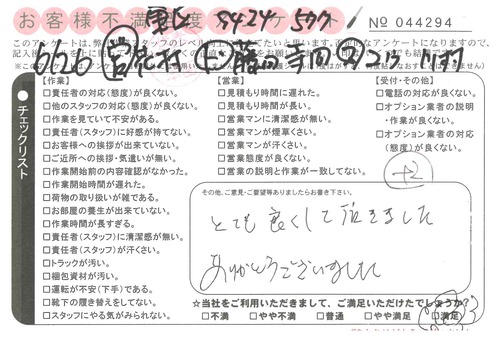 お客様不満足度アンケート
No 044294
このアンケートは、弊社スタッフのレベル向上に
【作業】
□責任者の対応(態度)が良くない。
□他のスタッフの対応(態度)が良くない。
□作業を見ていて不安がある。
□責任者(スタッフ)に好感が持てない。
□お客様への挨拶が出来ていない。
□ご近所への挨拶・気遣いが無い。
□作業開始前の内容確認がなかった。
□作業開始時間が遅れた。
□荷物の取り扱いが雑である。
□お部屋の養生が出来ていない。
□作業時間が長すぎる。
□責任者(スタッフ)に清潔感が無い。
□責任者(スタッフ)が汗くさい。
□トラックが汚い。
□梱包資材が汚い。
□運転が不安(下手)である。
□靴下の履き替えをしてない。
□スタッフにやる気がみられない。
【営業】
□見積もり時間に遅れた。
□見積もり時間が長い。
□営業マンに清潔感が無い。
□営業マンが煙草くさい。
□営業マンが汗くさい。
□営業態度が良くない。
□営業の説明と作業が一致してない。
【受付・その他】
□電話の対応が良くない。
□オプション業者の説明
・作業が良くない。
□オプション業者の対応
(態度)が良くない。
チェックリスト
その他、ご意見・ご要望等ありましたらお書き下さい。
とても良くして頂きました
ありがとうございました
☆当社をご利用いただきまして、ご満足いただけたでしょうか?
□不満 □やや不満 □普通 □やや満足 □満足